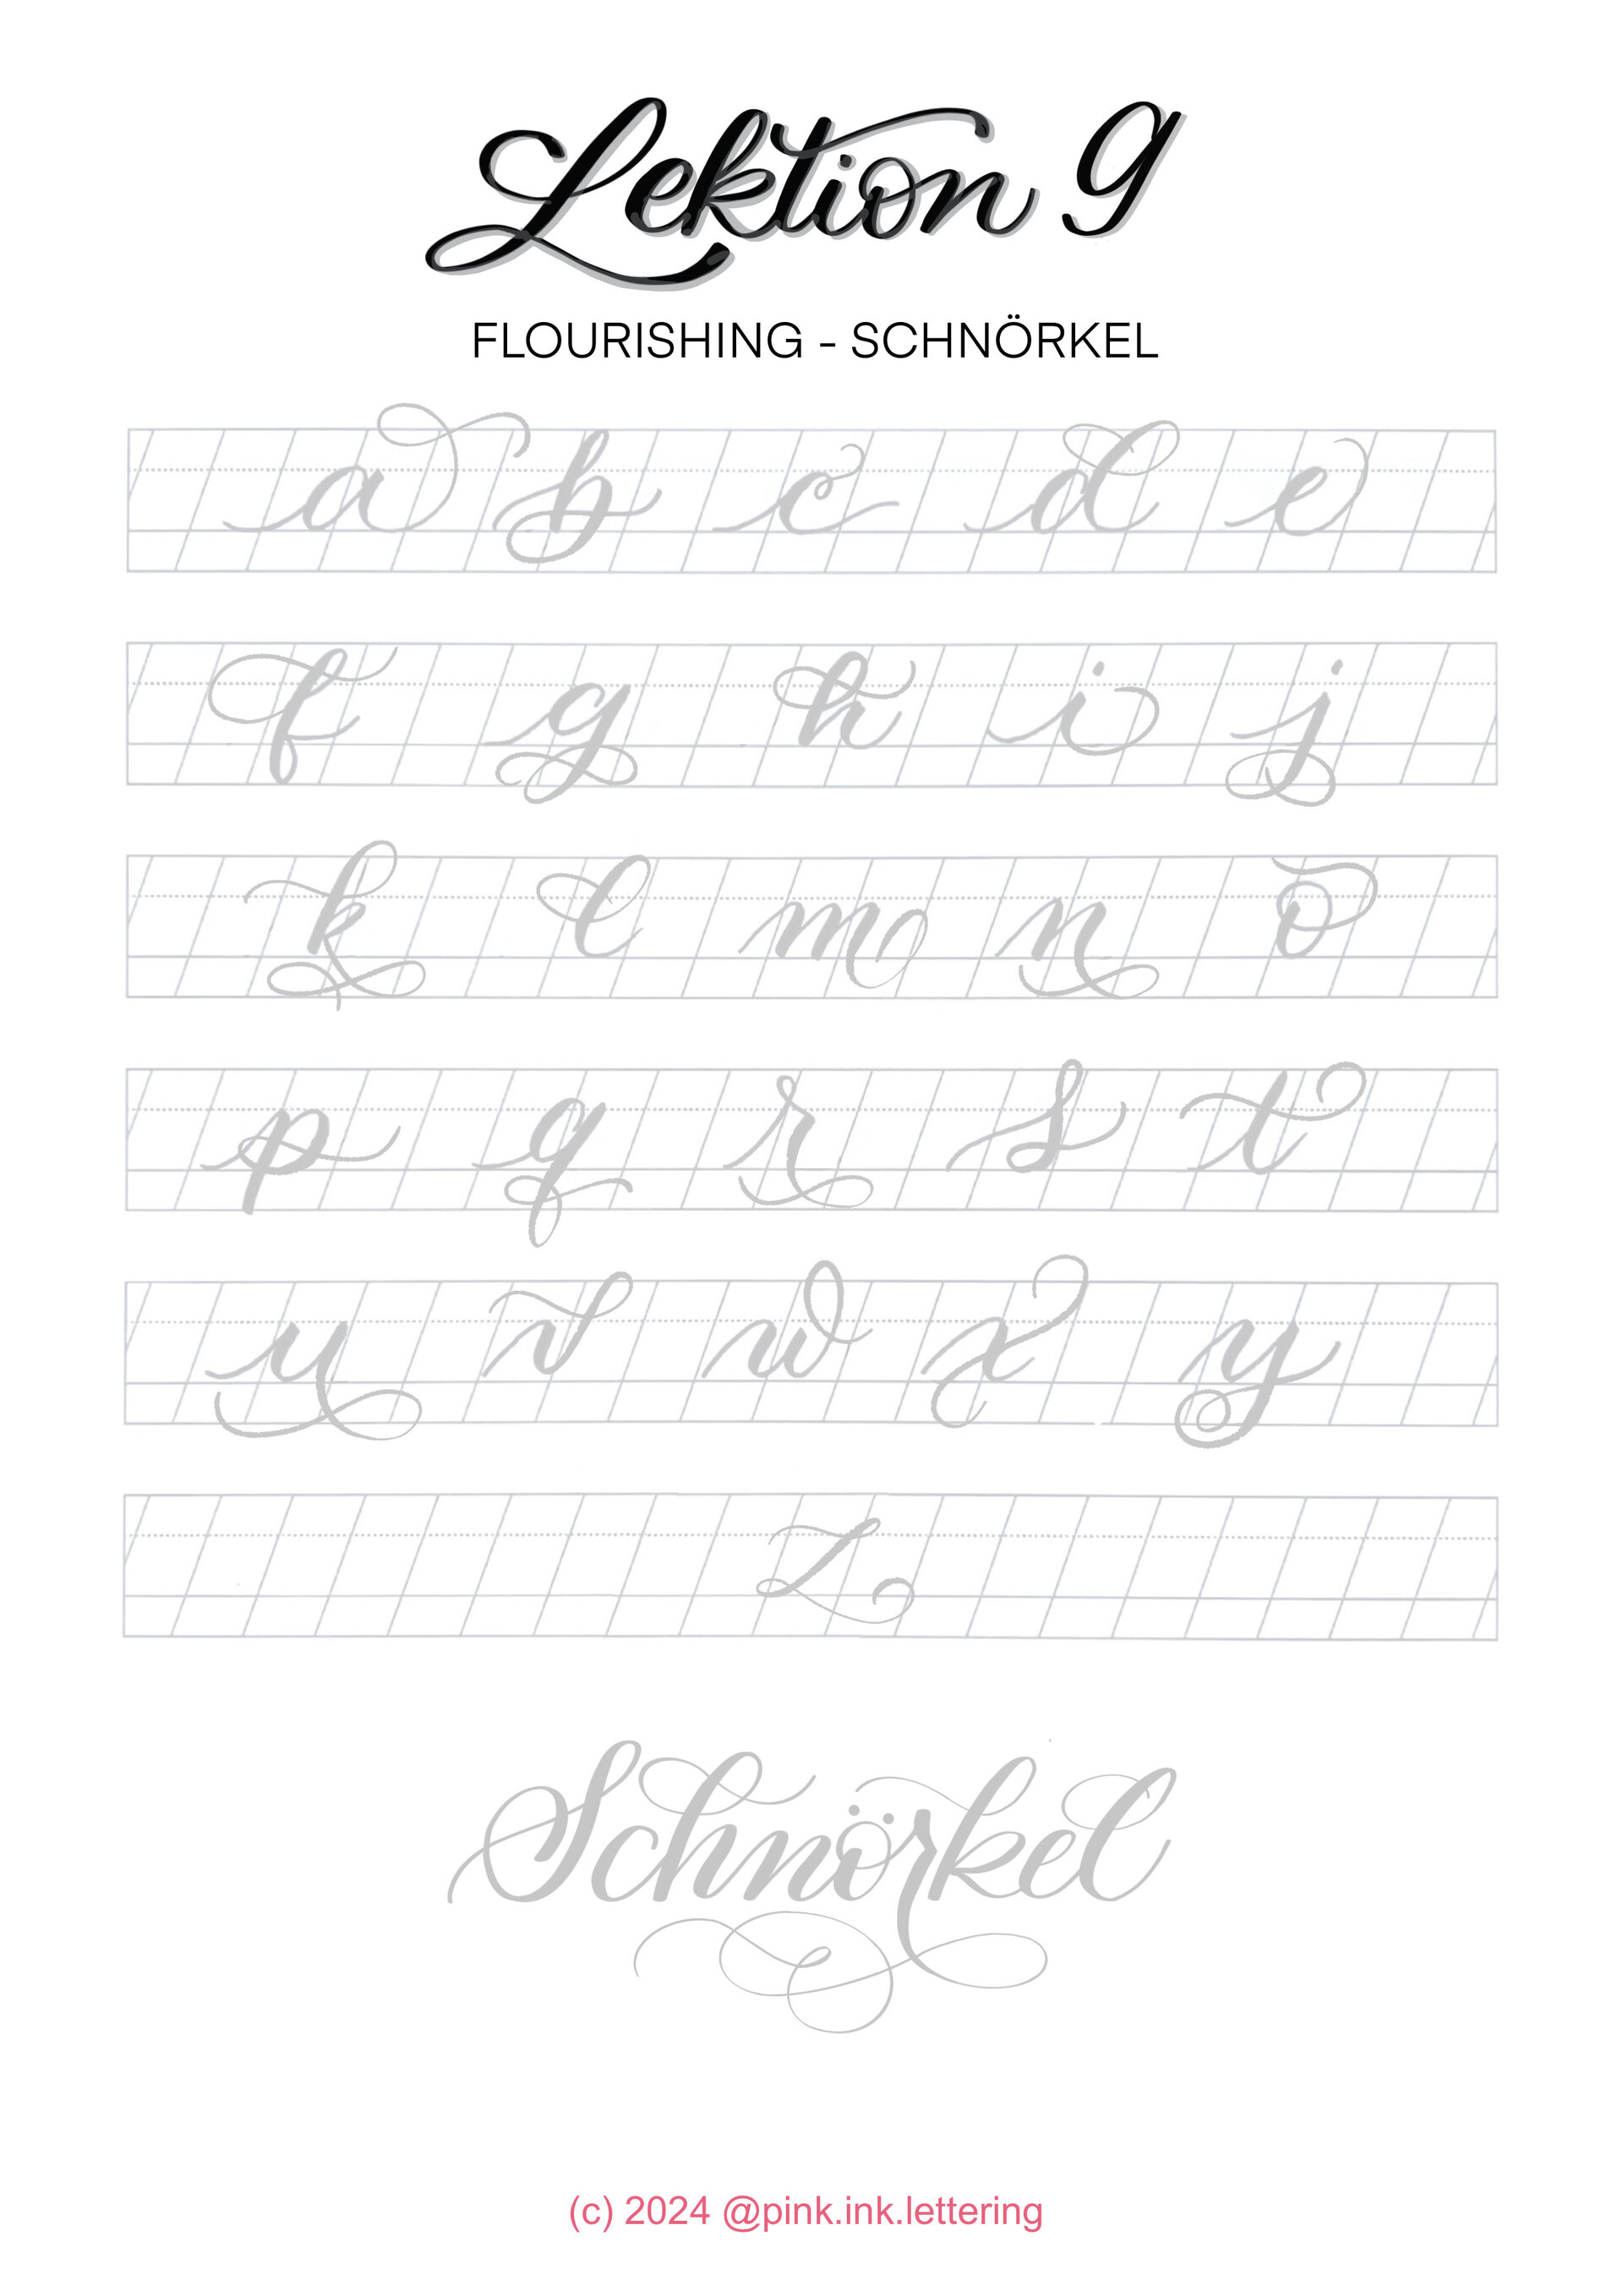 Lektion 9
FLOURISHING - SCHNÖRKEL
a b c d e
f g h i j
k l m n o
p q r s t
u v w x y
z
Schnörkel
(c) 2024 @pink.ink.lettering